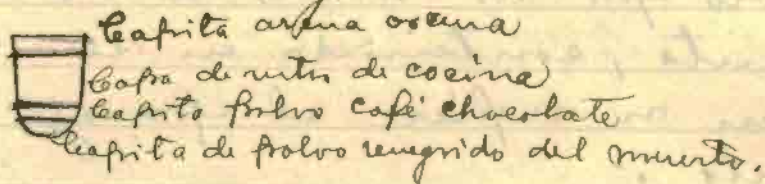 Capita arena oscura
Capa de restos de cocina
Capita polvo café chocolate
Capita de polvo renegrido del muerto.